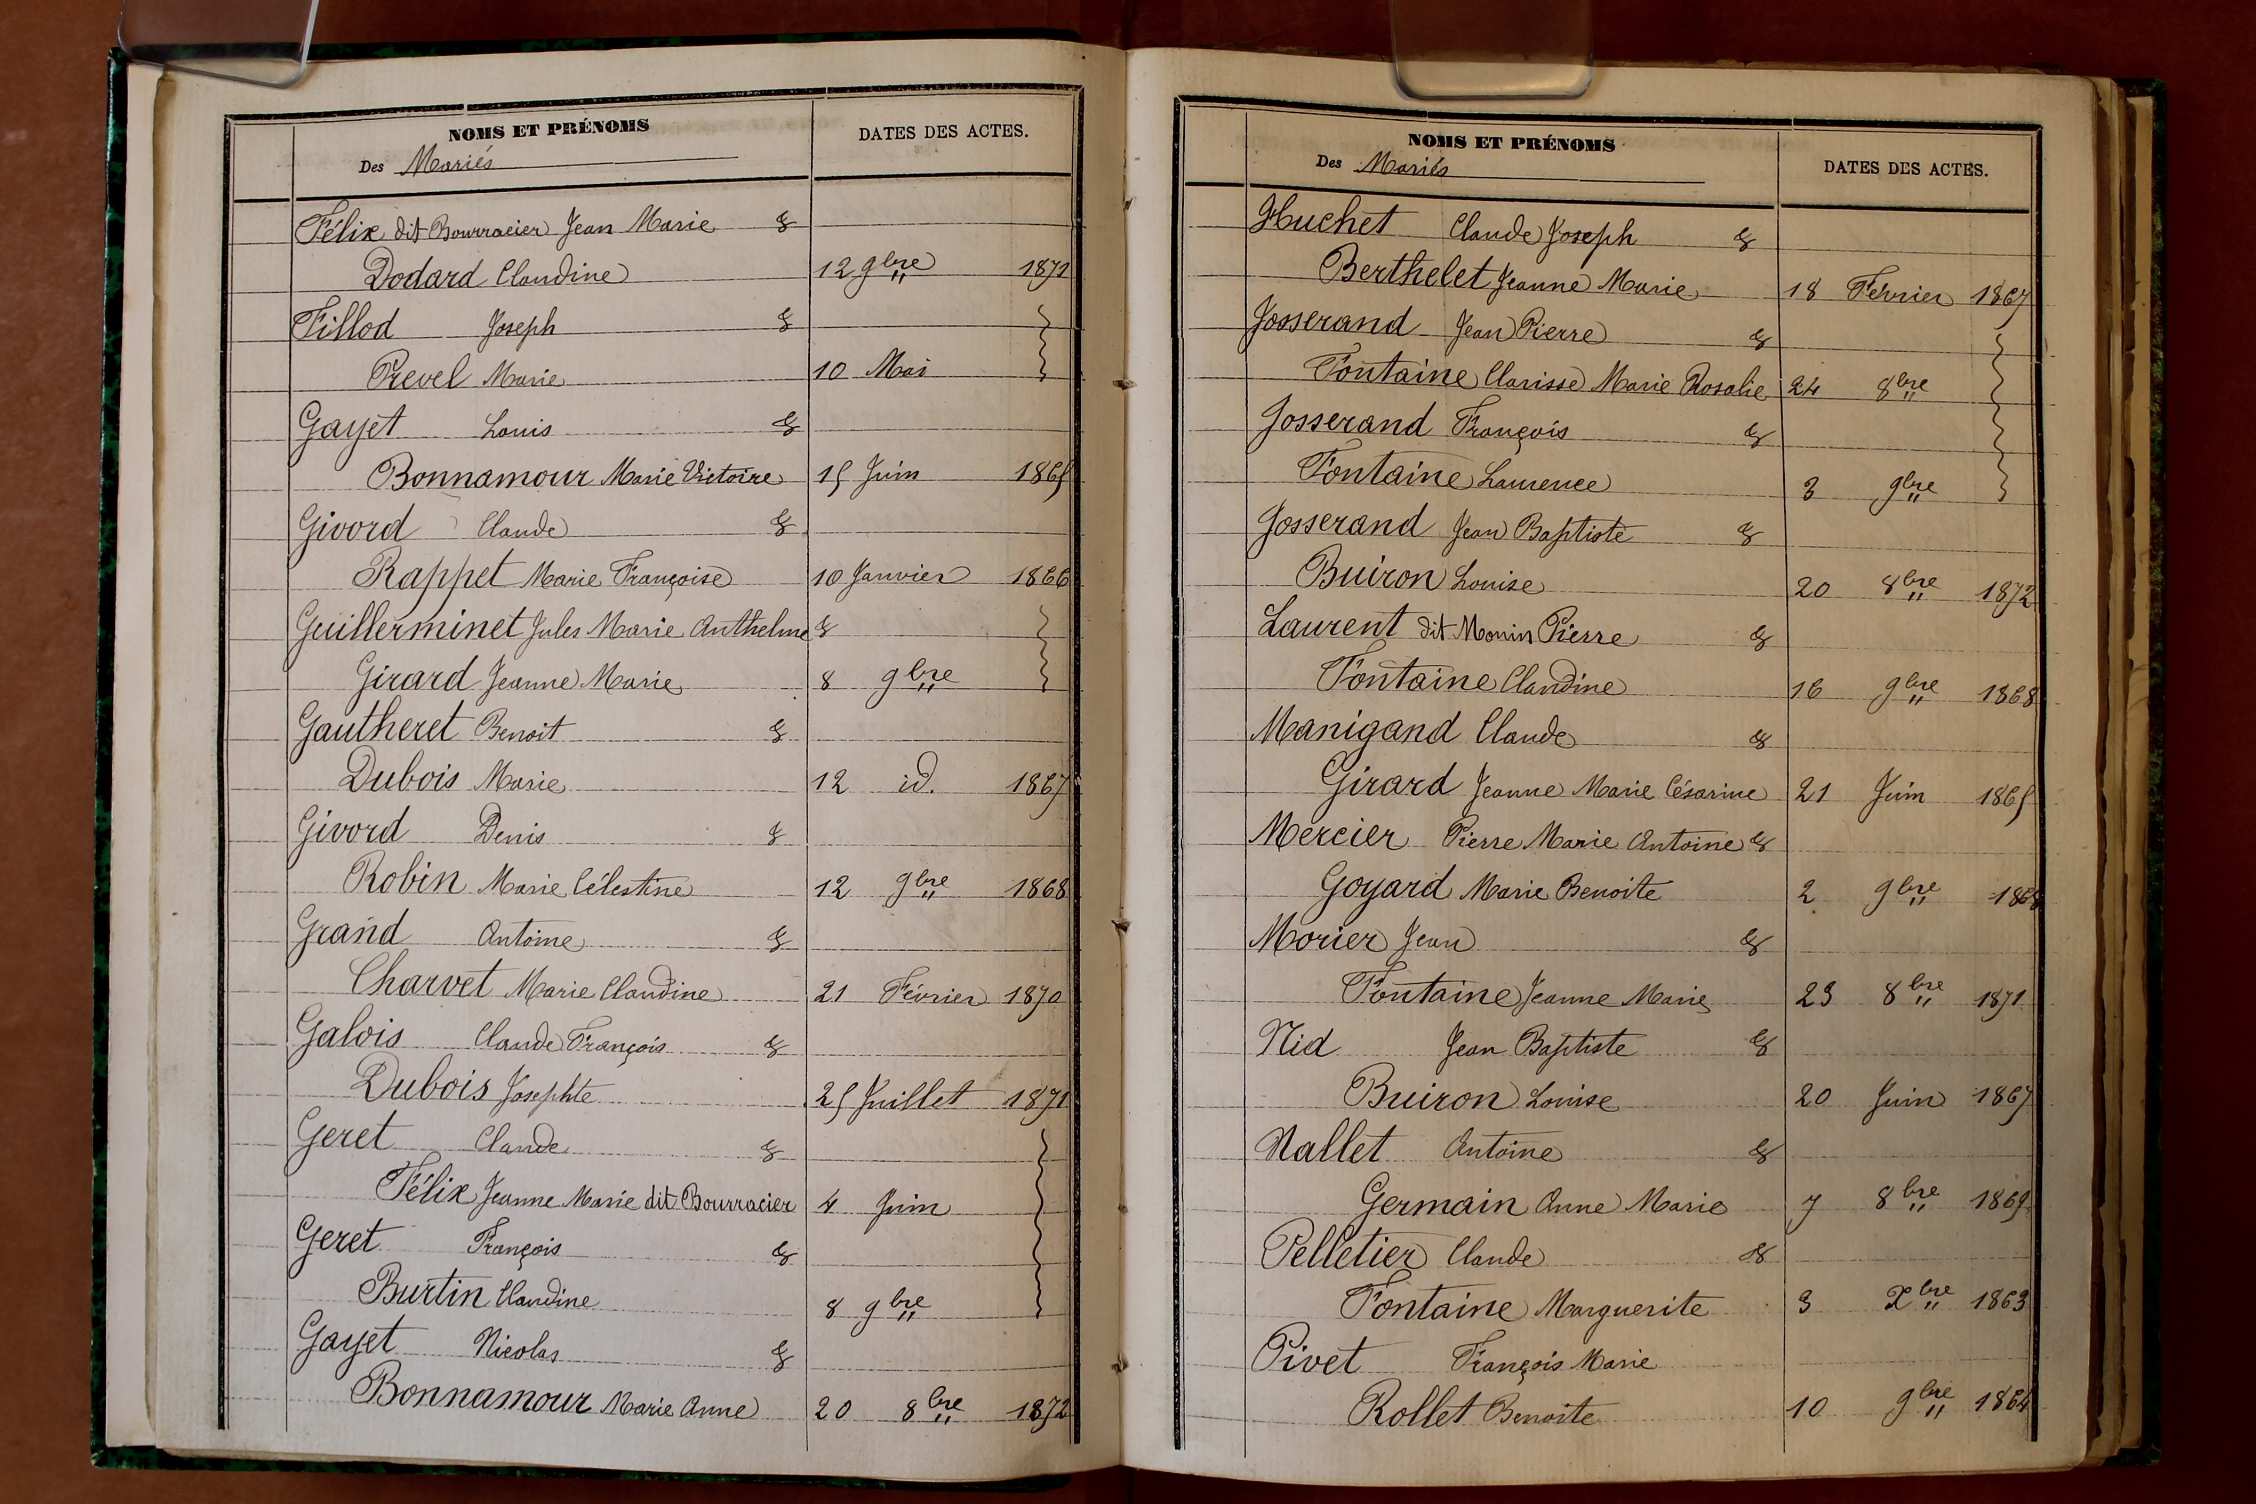 NOMS ET PRÉNOMS
Des Mariés
DATES DES ACTES.
Félix dit Bourracier Jean Marie &
Dodard Claudine 12 9bre 1871
Fillod Joseph &
Prevel Marie 10 Mai
Gayet Louis &
Bonnamour Marie Victoire 15 Juin 1865
Givord Claude &
Rappet Marie Françoise 10 Janvier 1866
Guillerminet Jules Marie Anthelme &
Girard Jeanne Marie 8 9bre
Gautheret Benoit &
Dubois Marie 12 id. 1867
Givord Denis &
Robin Marie Célestine 12 9bre 1868
Grand Antoine &
Charvet Marie Claudine 21 Février 1870
Galois Claude François &
Dubois Josephte 25 Juillet 1871
Geret Claude &
Félix Jeanne Marie dit Bourracier 4 Juin
Geret François &
Burtin Claudine 8 9bre
Gayet Nicolas &
Bonnamour Marie Anne 20 8bre 1872
NOMS ET PRÉNOMS
Des Mariés
DATES DES ACTES.
Huchet Claude Joseph &
Berthelet Jeanne Marie 18 Février 1867
Josserand Jean Pierre &
Fontaine Clarisse Marie Rosalie 24 8bre
Josserand François &
Fontaine Laurence 3 9bre
Josserand Jean Baptiste &
Buiron Louise 20 8bre 1872
Laurent dit Monin Pierre &
Fontaine Claudine 16 9bre 1868
Manigand Claude &
Girard Jeanne Marie Césarine 21 Juin 1865
Mercier Pierre Marie Antoine &
Goyard Marie Benoite 2 9bre
Morier Jean &
Fontaine Jeanne Marie 23 8bre 1871
Nid Jean Baptiste &
Buiron Louise 20 Juin 1867
Nallet Antoine &
Germain Anne Marie 7 8bre 1869
Pelletier Claude &
Fontaine Marguerite 3 Xbre 1863
Pivet François Marie
Rollet Benoite 10 9bre 1864